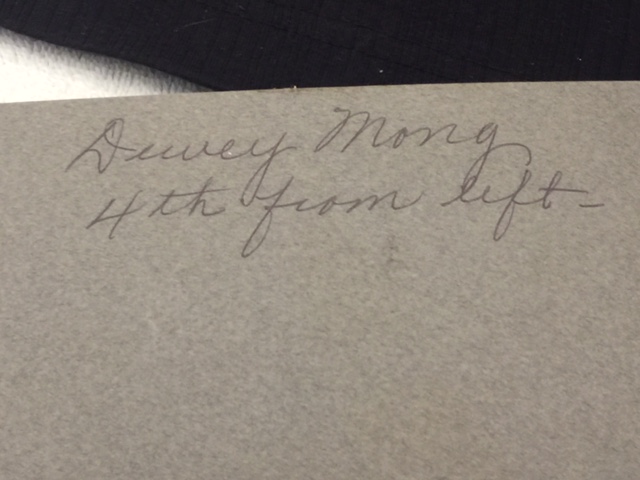 Dewey Mong
4th from left-